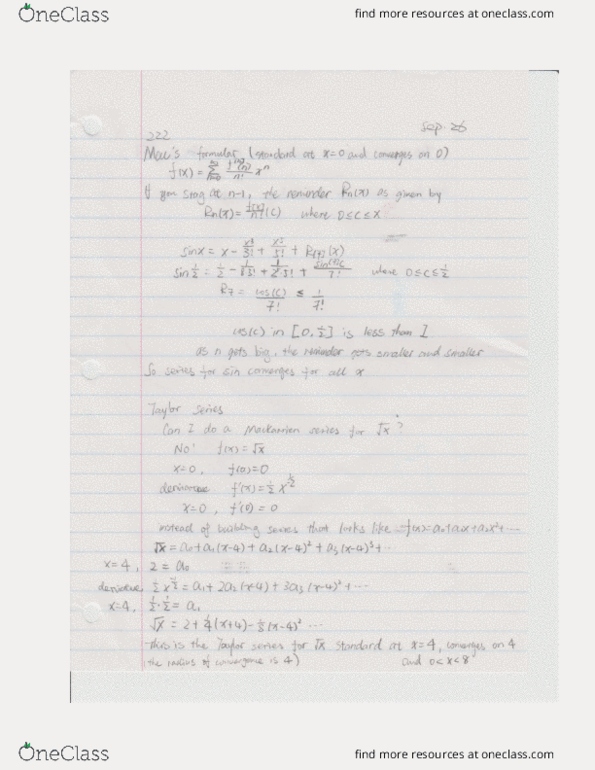 OneClass
find more resources at oneclass.com
Sep. 26
222
Mac's formular (standard at x=0 and converges on 0)
f(x) = ∑ x^n
If you stop at n-1, the remainder Rn(x) as given by
Rn(x) = (c) where 0≤c≤x
sinx = x - x³/3! + x⁵/5! + R(7)(x)
sin ½ = ½ - where 0≤c≤½
R7 = cos(c)/7! ≤ 1/7!
cos(c) in [0, ½] is less than 1
as n gets big, the remainder gets smaller and smaller
So series for sin converges for all x
Taylor series
Can I do a series for √x?
No! f(x)=√x
x=0, f(0)=0
derivative f'(x)=½ x
x=0, f'(0)=0
instead of building series that looks like f(x)=a₀+a₁x+a₂x²+...
√x = a₀+a₁(x-4)+a₂(x-4)²+a₃(x-4)³+...
x=4, 2=a₀
derivative = a₁+2a₂(x-4)+3a₃(x-4)²+...
x=4, ½·½=a₁
√x = 2+¼(x+4)- (x-4)² ...
this is the Taylor series for √x standard at x=4, converges on 4
(the radius of convergence is 4) and 0<x<8
OneClass
find more resources at oneclass.com